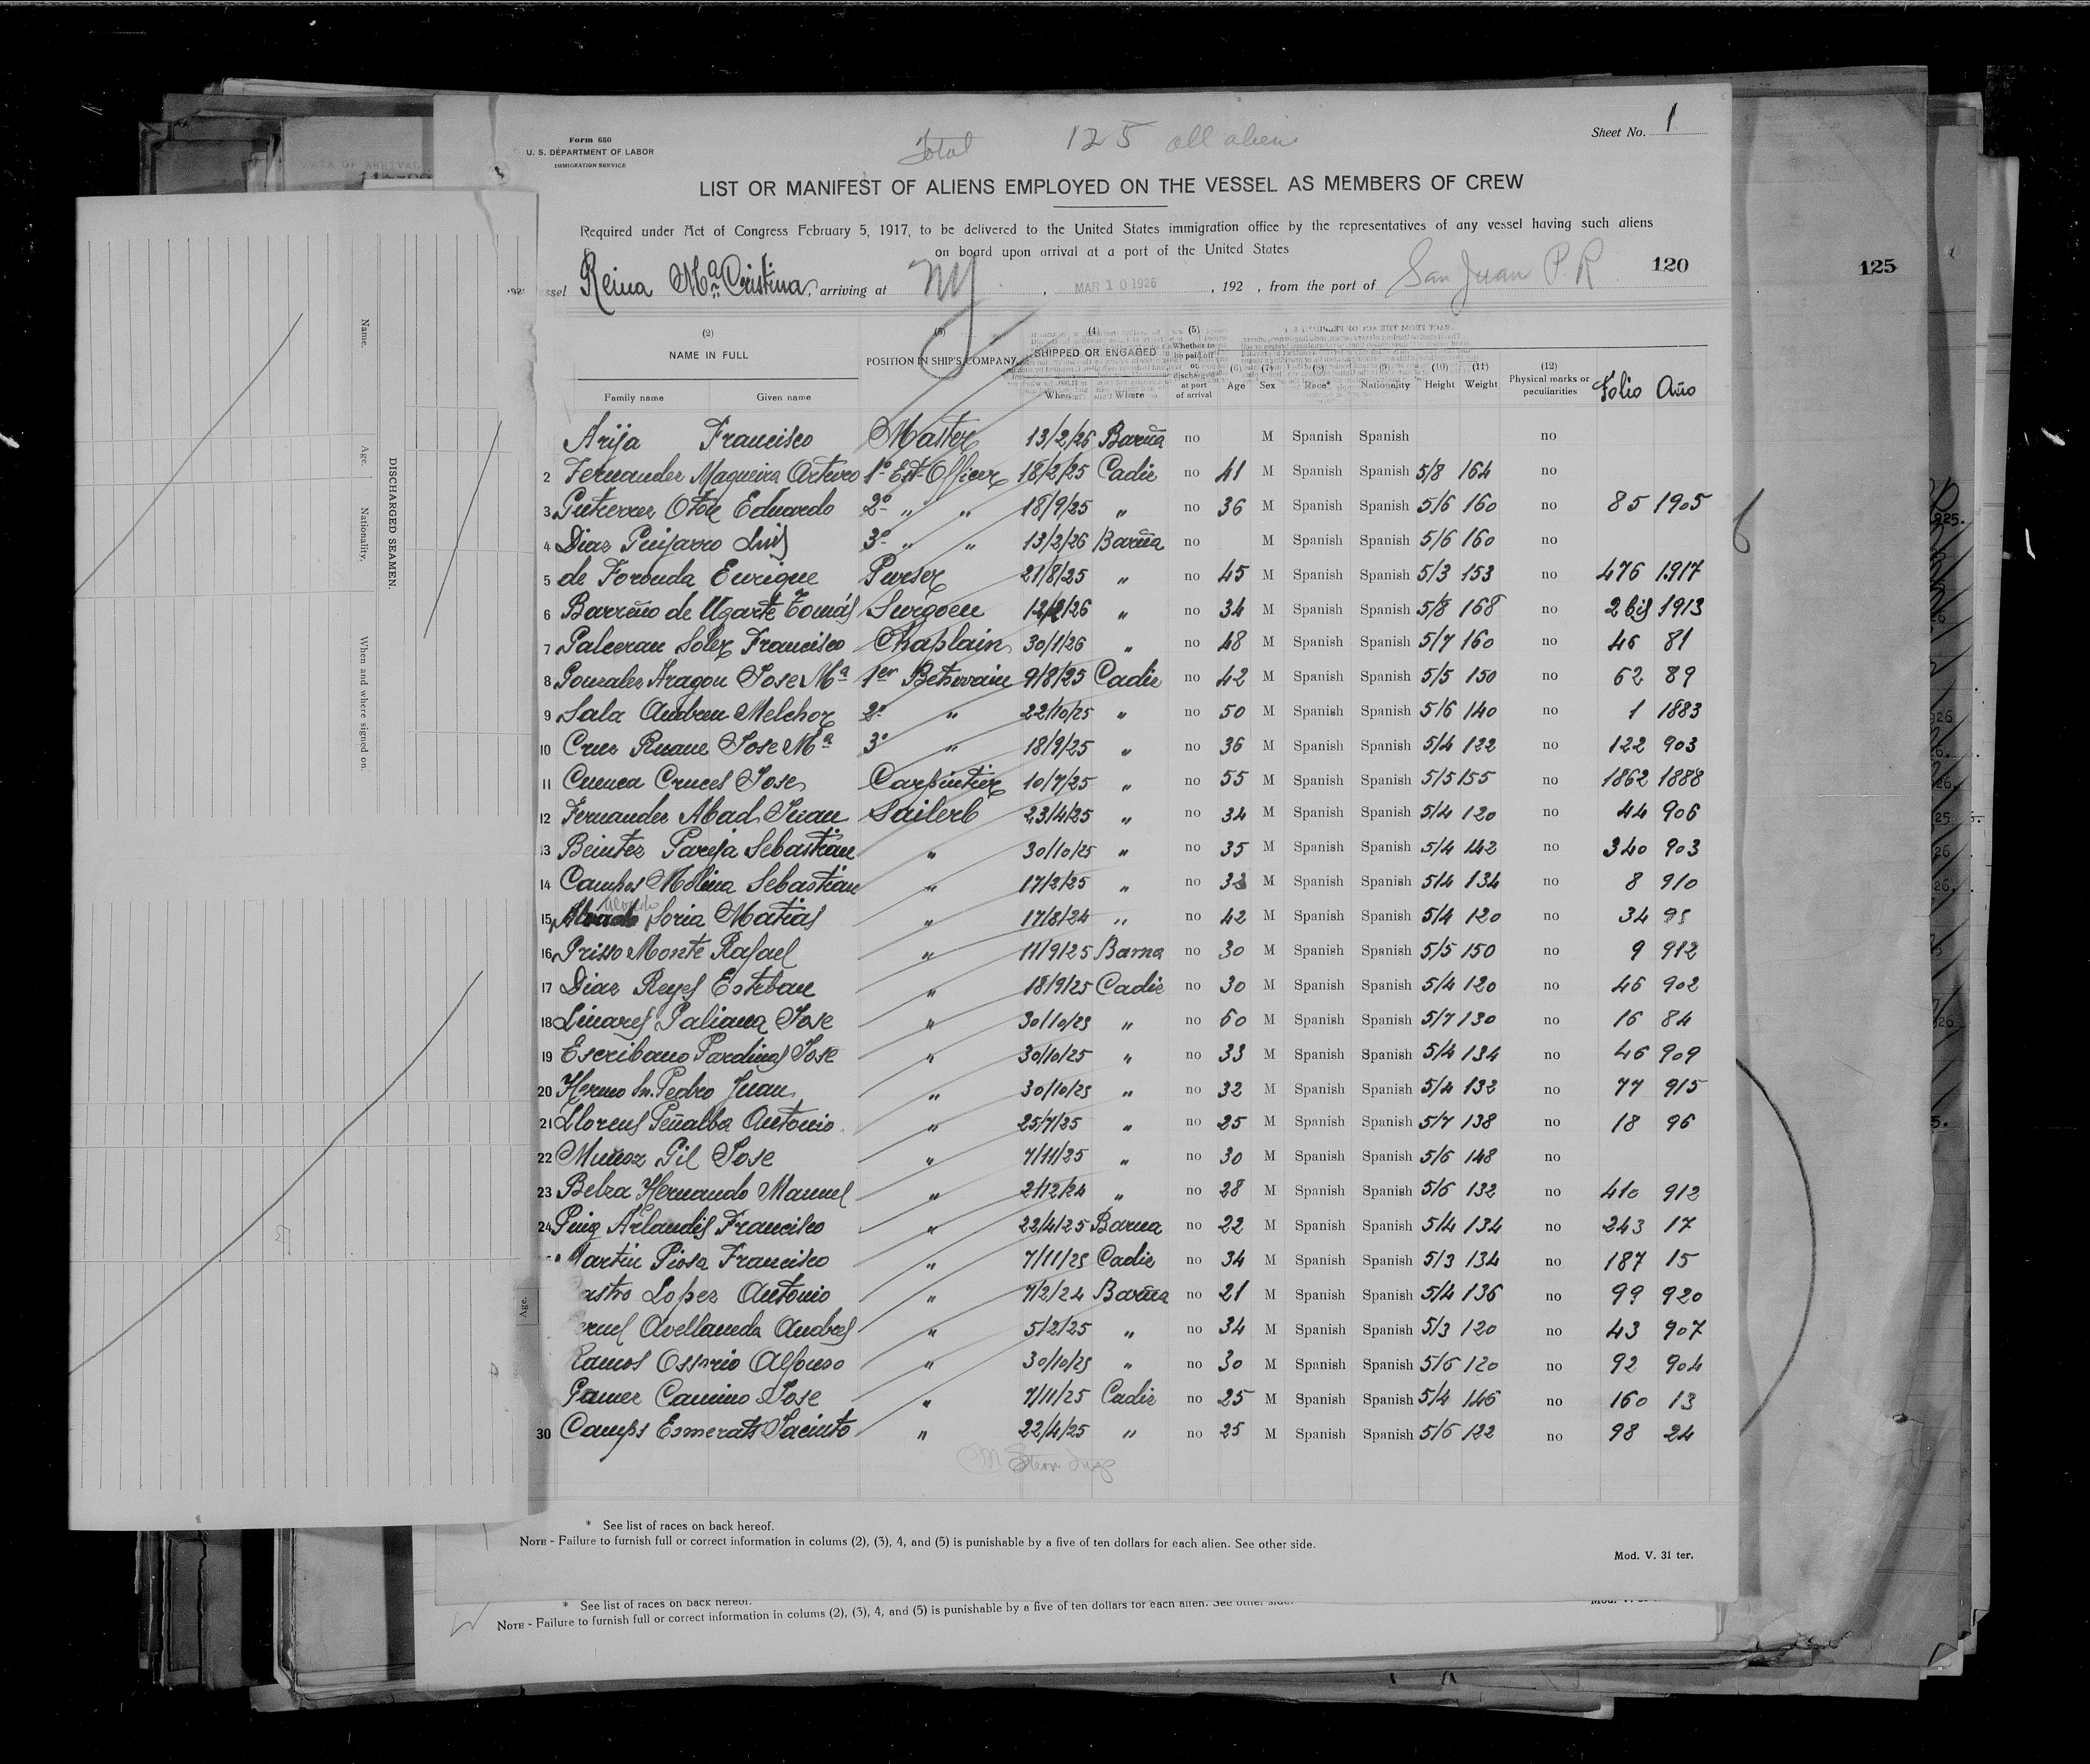 Form 680
U. S. DEPARTMENT OF LABOR
IMMIGRATION SERVICE
Total 125 all aliens
Sheet No. 1
LIST OR MANIFEST OF ALIENS EMPLOYED ON THE VESSEL AS MEMBERS OF CREW
Required under Act of Congress February 5, 1917, to be delivered to the United States immigration office by the representatives of any vessel having such aliens
on board upon arrival at a port of the United States
120
125
Reina Mª Cristina, arriving at NY, MAR 10 1926, 192 , from the port of San Juan P. R.
(2) (3) (4) (5) (6) (7) (8) (9) (10) (11) (12)
NAME IN FULL POSITION IN SHIP'S COMPANY SHIPPED OR ENGAGED Whether to be paid off or discharged at port of arrival Age Sex Race* Nationality Height Weight Physical marks or peculiarities Folio Año
Family name Given name When Where
Arija Francisco Master 13/2/26 Barña no M Spanish Spanish no
2 Fernandez Maqueira Arturo 1º Est. Officer 18/2/25 Cadiz no 41 M Spanish Spanish 5/8 164 no
3 Gutierrez Oton Eduardo 2º " " 18/9/25 " no 36 M Spanish Spanish 5/6 160 no 85 1905
4 Diaz Guijarro Luis 3º " " 13/2/26 Barña no M Spanish Spanish 5/6 160 no
5 de Foronda Enrique Purser 21/8/25 " no 45 M Spanish Spanish 5/3 153 no 476 1917
6 Barreño de Ugarte Tomás Surgoen 12/2/26 " no 34 M Spanish Spanish 5/8 168 no 2 bis 1913
7 Galceran Soler Francisco Chaplain 30/1/26 " no 48 M Spanish Spanish 5/7 160 no 46 81
8 Gonzalez Aragon Jose Mª 1er Betswain 9/8/25 Cadiz no 42 M Spanish Spanish 5/5 150 no 62 89
9 Sala Andreu Melchor 2º " 22/10/25 " no 50 M Spanish Spanish 5/6 140 no 1 1883
10 Cruz Ruane Jose Mª 3º " 18/9/25 " no 36 M Spanish Spanish 5/4 122 no 122 903
11 Cuenca Cruces Jose Carpintier 10/7/25 " no 55 M Spanish Spanish 5/5 155 no 1862 1888
12 Fernandez Abad Juan Sailerb 23/4/25 " no 34 M Spanish Spanish 5/4 120 no 44 906
13 Beintez Pareja Sebastian " 30/10/25 " no 35 M Spanish Spanish 5/4 142 no 340 903
14 Campos Molina Sebastian " 17/2/25 " no M Spanish Spanish 5/4 134 no 8 910
15 Soria Matias " 17/8/24 " no 42 M Spanish Spanish 5/4 120 no 34 95
16 Grisso Monte Rafael " 11/9/25 Barna no 30 M Spanish Spanish 5/5 150 no 9 912
17 Diaz Reyes Esteban " 18/9/25 Cadiz no 30 M Spanish Spanish 5/4 120 no 46 902
18 Linares Galiana Jose " 30/10/25 " no 50 M Spanish Spanish 5/7 130 no 16 84
19 Escribano Pardinas Jose " 30/10/25 " no 33 M Spanish Spanish 5/4 134 no 46 909
20 Hermo Sn. Pedro Juan " 30/10/25 " no 32 M Spanish Spanish 5/4 132 no 77 915
21 Llorens Peñalba Antonio " 25/7/25 " no 25 M Spanish Spanish 5/7 138 no 18 96
22 Muñoz Gil Jose " 7/11/25 " no 30 M Spanish Spanish 5/6 148 no
23 Belza Hernando Manuel " 2/12/24 " no 28 M Spanish Spanish 5/6 132 no 410 912
24 Puig Arlandis Francisco " 22/4/25 Barna no 22 M Spanish Spanish 5/4 134 no 243 17
Martin Giosa Francisco " 7/11/25 Cadiz no 34 M Spanish Spanish 5/3 134 no 187 15
astro Lopez Antonio " 7/2/24 Barña no 21 M Spanish Spanish 5/4 136 no 99 920
Avellaneda Andres " 5/2/25 " no 34 M Spanish Spanish 5/3 120 no 43 907
Ramos Ossorio Alfonso " 30/10/25 " no 30 M Spanish Spanish 5/6 120 no 92 904
Gamez Camino Jose " 7/11/25 Cadiz no 25 M Spanish Spanish 5/4 146 no 160 13
30 Camps Esmerats Jacinto " 22/4/25 " no 25 M Spanish Spanish 5/6 122 no 98 24
* See list of races on back hereof.
NOTE - Failure to furnish full or correct information in colums (2), (3), 4, and (5) is punishable by a five of ten dollars for each alien. See other side.
Mod. V. 31 ter.
* See list of races on back hereof.
NOTE - Failure to furnish full or correct information in colums (2), (3), 4, and (5) is punishable by a five of ten dollars for each alien. See other side.
DISCHARGED SEAMEN.
Name. Age. Nationality. When and where signed on.
Age.